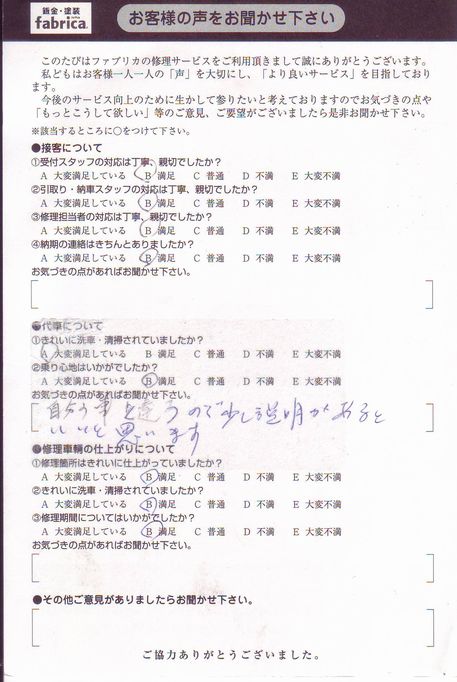 鈑金・塗装
fabrica
お客様の声をお聞かせ下さい
このたびはファブリカの修理サービスをご利用頂きまして誠にありがとうございます。
私どもはお客様一人一人の「声」を大切にし、「より良いサービス」を目指しており
ます。
今後のサービス向上のために生かして参りたいと考えておりますのでお気づきの点や
「もっとこうして欲しい」等のご意見、ご要望がございましたら是非お聞かせ下さい。
※該当するところに○をつけて下さい。
●接客について
①受付スタッフの対応は丁寧、親切でしたか?
A 大変満足している B 満足 C 普通 D 不満 E 大変不満
②引取り・納車スタッフの対応は丁寧、親切でしたか?
A 大変満足している B 満足 C 普通 D 不満 E 大変不満
③修理担当者の対応は丁寧、親切でしたか?
A 大変満足している B 満足 C 普通 D 不満 E 大変不満
④納期の連絡はきちんとありましたか?
A 大変満足している B 満足 C 普通 D 不満 E 大変不満
お気づきの点があればお聞かせ下さい。
●代車について
①きれいに洗車・清掃されていましたか?
A 大変満足している B 満足 C 普通 D 不満 E 大変不満
②乗り心地はいかがでしたか?
A 大変満足している B 満足 C 普通 D 不満 E 大変不満
お気づきの点があればお聞かせ下さい。
自分の車と違うので少し説明があると
いいと思います
●修理車輌の仕上がりについて
①修理箇所はきれいに仕上がっていましたか?
A 大変満足している B 満足 C 普通 D 不満 E 大変不満
②きれいに洗車・清掃されていましたか?
A 大変満足している B 満足 C 普通 D 不満 E 大変不満
③修理期間についてはいかがでしたか?
A 大変満足している B 満足 C 普通 D 不満 E 大変不満
お気づきの点があればお聞かせ下さい。
●その他ご意見がありましたらお聞かせ下さい。
ご協力ありがとうございました。